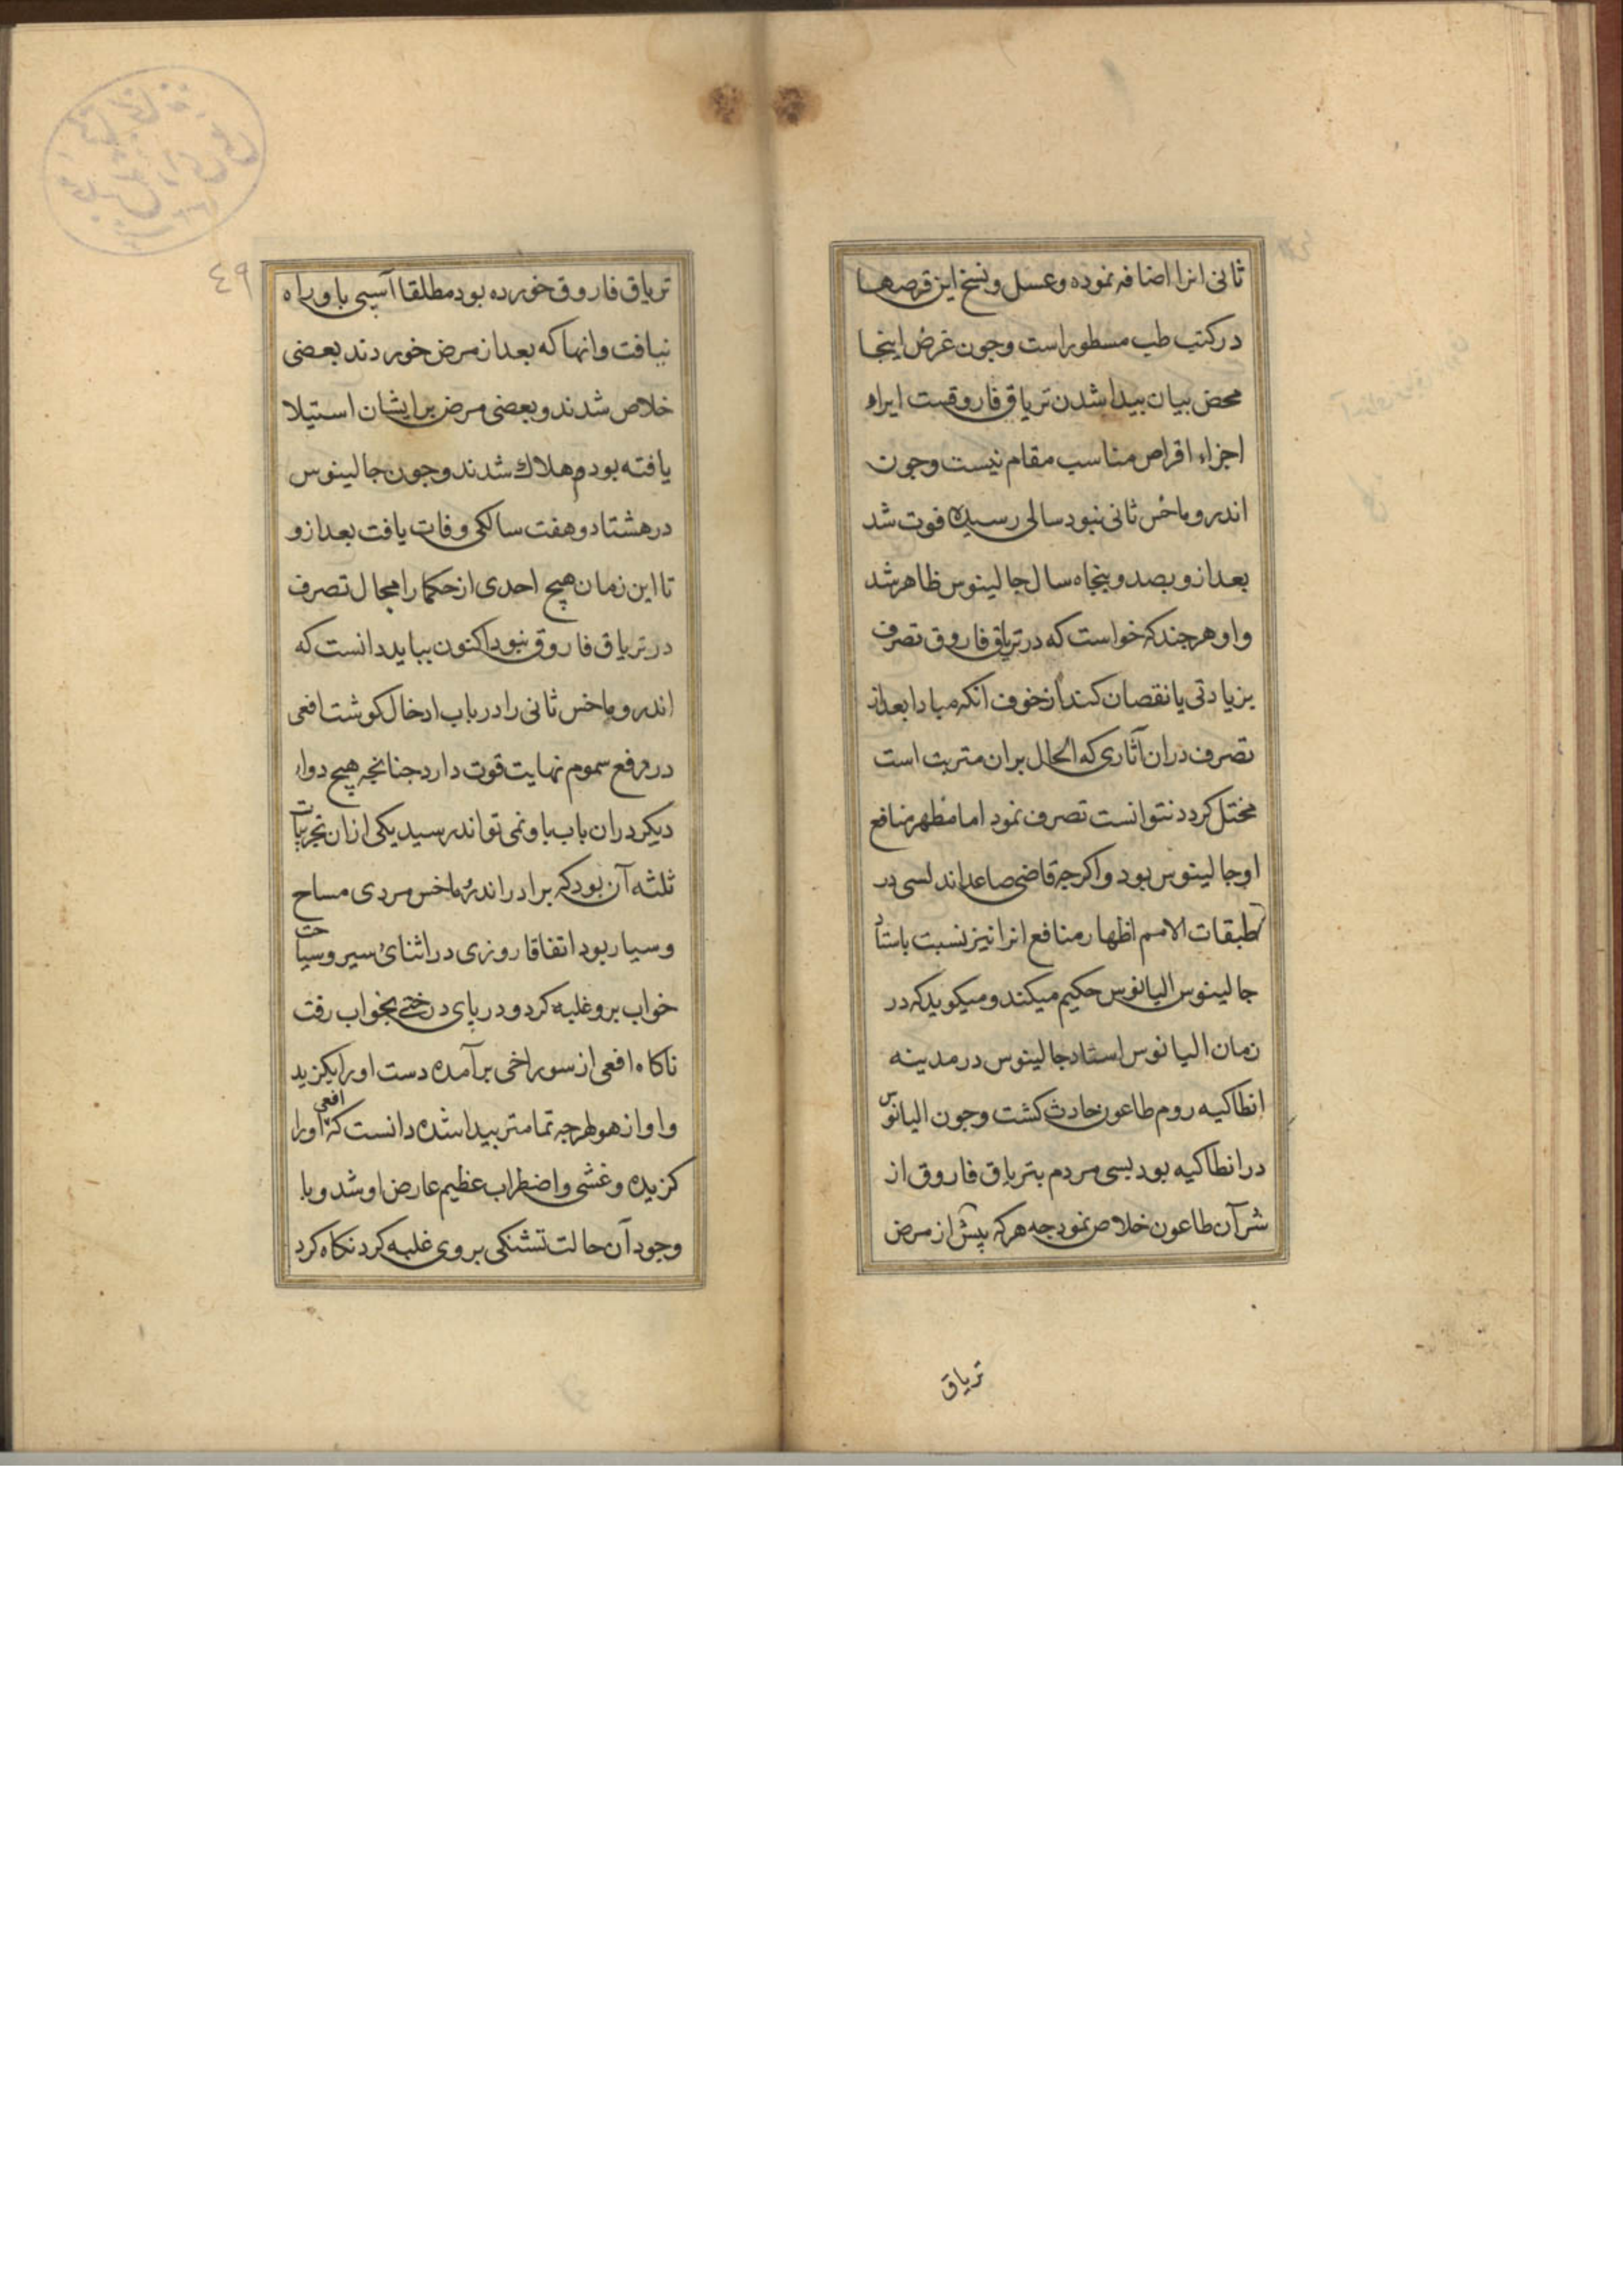 ثانی انرا اضافه نموده وعسل ونسخ این قرصها
درکتب طب مسطور است وجون غرض اینجا
محض بیان بیدا شدن تریاق فاروقست ایراد
اجزاء اقراص مناسب مقام نیست وجون
اندروماخس ثانی نبود سالی رسیده فوت شد
بعد ازو بصد وبنجاه سال جالینوس ظاهر شد
واو هرجند که خواست که در تریاق فاروق تصرف
بزیادتی یا نقصان کند از خوف انکه مبادا بعد از
تصرف دران آثاری که الحال بران مترتب است
مختل کردد نتوانست تصرف نمود اما مظهر منافع
او جالینوس بود واکرجه قاضی صاعد اندلسی در
طبقات الامم اظهار منافع انرا نیز نسبت باستاد
جالینوس الیانوس حکیم میکند ومیکوید که در
زمان الیانوس استاد جالینوس در مدینه
انطاکیه روم طاعون حادث کشت وجون الیانوس
در انطاکیه بود بسی مردم بتریاق فاروق از
شر آن طاعون خلاص نمود جه هرکه پیش از مرض
تریاق
٤٩
تریاق فاروق خورده بود مطلقا آسیبی باو راه
نیافت وانها که بعد از مرض خوردند بعضی
خلاص شدند وبعضی مرض بر ایشان استیلا
یافته بود هلاک شدند وجون جالینوس
در هشتاد وهفت سالکی وفات یافت بعد ازو
تا این زمان هیچ احدی از حکما را مجال تصرف
در تریاق فاروق نبود اکنون بباید دانست که
اندروماخس ثانی را در باب ادخال کوشت افعی
در رفع سموم نهایت قوت دارد جنانجه هیچ دواء
دیکر دران باب باو نمی تواند رسید یکی ازان تجربیات
ثلثه آن بود که برادر اندروماخس مردی مساح
وسیار بود اتفاقا روزی در اثنای سیر وسیاحت
خواب برو غلبه کرد ودر پای درختی بخواب رفت
ناکاه افعی از سوراخی برآمده دست او را بکزید
واو از هول هرجه تمامتر بیدار شده دانست که افعی او را
کزیده وغشی واضطراب عظیم عارض او شد وبا
وجود آن حالت تشنکی بر وی غلبه کرد نکاه کرد